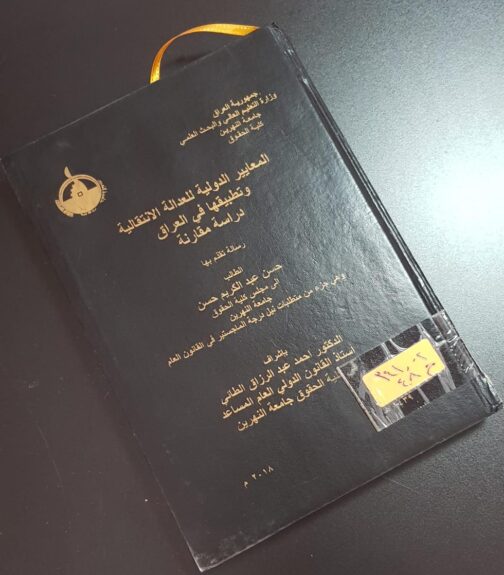 جمهورية العراق
وزارة التعليم العالي والبحث العلمي
جامعة النهرين
كلية الحقوق
المعايير الدولية للعدالة الانتقالية
وتطبيقها في العراق
دراسة مقارنة
رسالة تقدم بها
الطالب
حسن عبد الكريم حسن
الى مجلس كلية الحقوق
جامعة النهرين
وهي جزء من متطلبات نيل درجة الماجستير في القانون العام
باشراف
الدكتور احمد عبد الرزاق الطائي
استاذ القانون الدولي العام المساعد
كلية الحقوق جامعة النهرين
٢٠١٨ م
٣٤١,٠٢
ح ٤٨٠